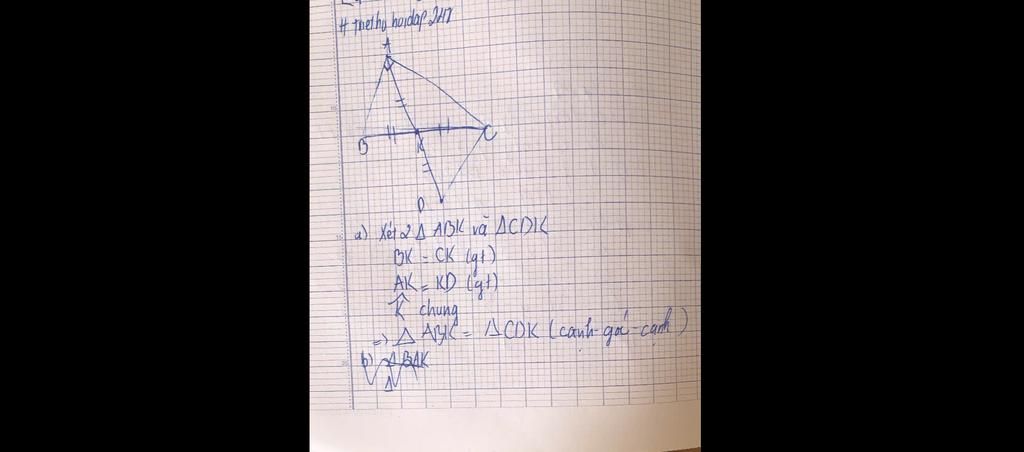 hoidap 247
A
B
K
C
D
a) Xét 2 Δ ABK và ΔCDK
BK = CK (gt)
AK = KD (gt)
K̂ chung
=> Δ ABK = ΔCDK (cạnh-góc-cạnh)
b)